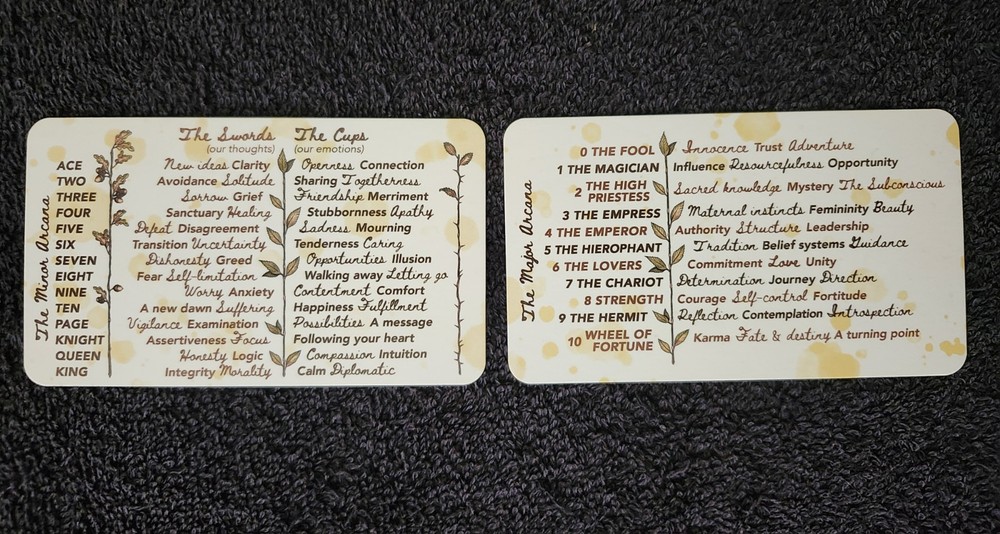 The Minor Arcana
The Swords The Cups
(our thoughts) (our emotions)
ACE New ideas Clarity Openness Connection
TWO Avoidance Solitude Sharing Togetherness
THREE Sorrow Grief Friendship Merriment
FOUR Sanctuary Healing Stubbornness Apathy
FIVE Defeat Disagreement Sadness Mourning
SIX Transition Uncertainty Tenderness Caring
SEVEN Dishonesty Greed Opportunities Illusion
EIGHT Fear Self-limitation Walking away Letting go
NINE Worry Anxiety Contentment Comfort
TEN A new dawn Suffering Happiness Fulfillment
PAGE Vigilance Examination Possibilities A message
KNIGHT Assertiveness Focus Following your heart
QUEEN Honesty Logic Compassion Intuition
KING Integrity Morality Calm Diplomatic
The Major Arcana
0 THE FOOL Innocence Trust Adventure
1 THE MAGICIAN Influence Resourcefulness Opportunity
2 THE HIGH
PRIESTESS Sacred knowledge Mystery The Subconscious
3 THE EMPRESS Maternal instincts Femininity Beauty
4 THE EMPEROR Authority Structure Leadership
5 THE HIEROPHANT Tradition Belief systems Guidance
6 THE LOVERS Commitment Love Unity
7 THE CHARIOT Determination Journey Direction
8 STRENGTH Courage Self-control Fortitude
9 THE HERMIT Reflection Contemplation Introspection
10 WHEEL OF
FORTUNE Karma Fate & destiny A turning point